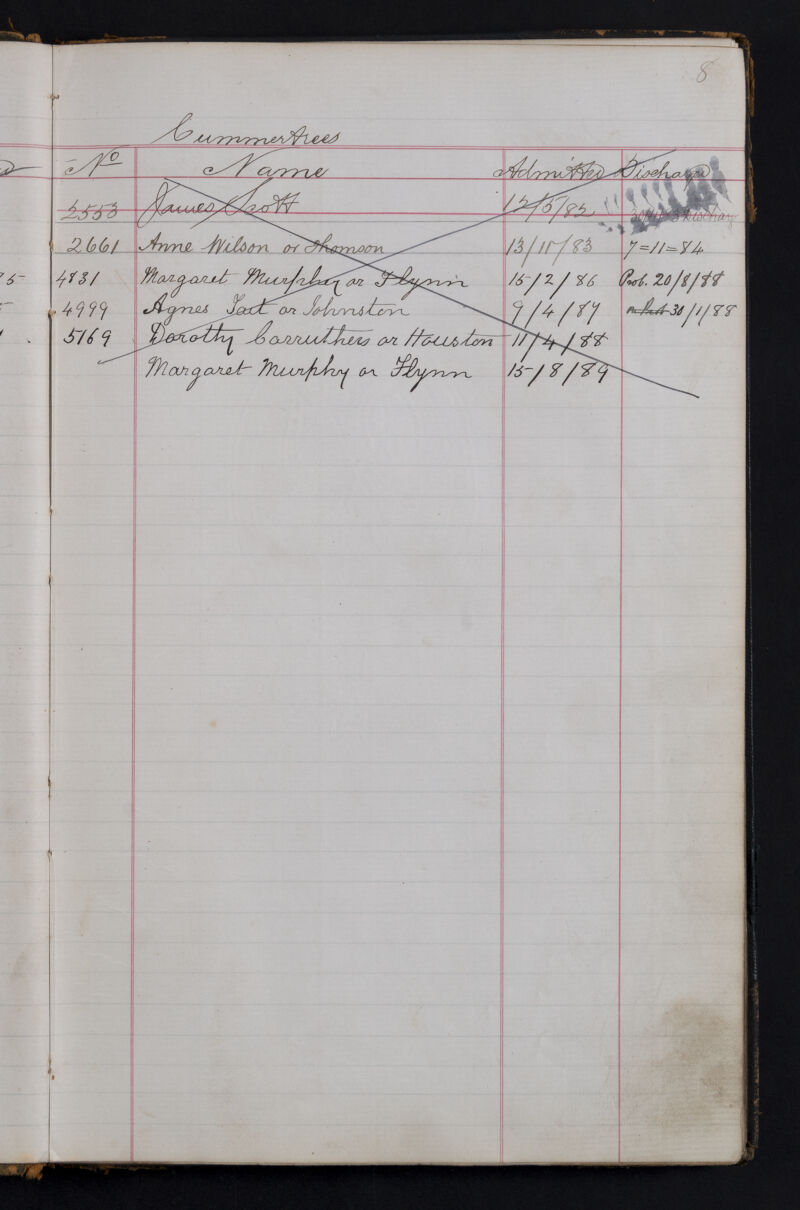 8
Cummertrees
No Name Admitted Discharged
2553 James Scott 12/5/82
2661 Anne Wilson or Thomson 13/11/83 7=11=84
4831 Margaret Murphy or Flynn 15/2/86 Prob. 20/8/88
4999 Agnes Tait or Johnston 9/4/87 30/1/88
5169 Dorothy Carruthers or Houston 11/4/88
Margaret Murphy or Flynn 15/8/89